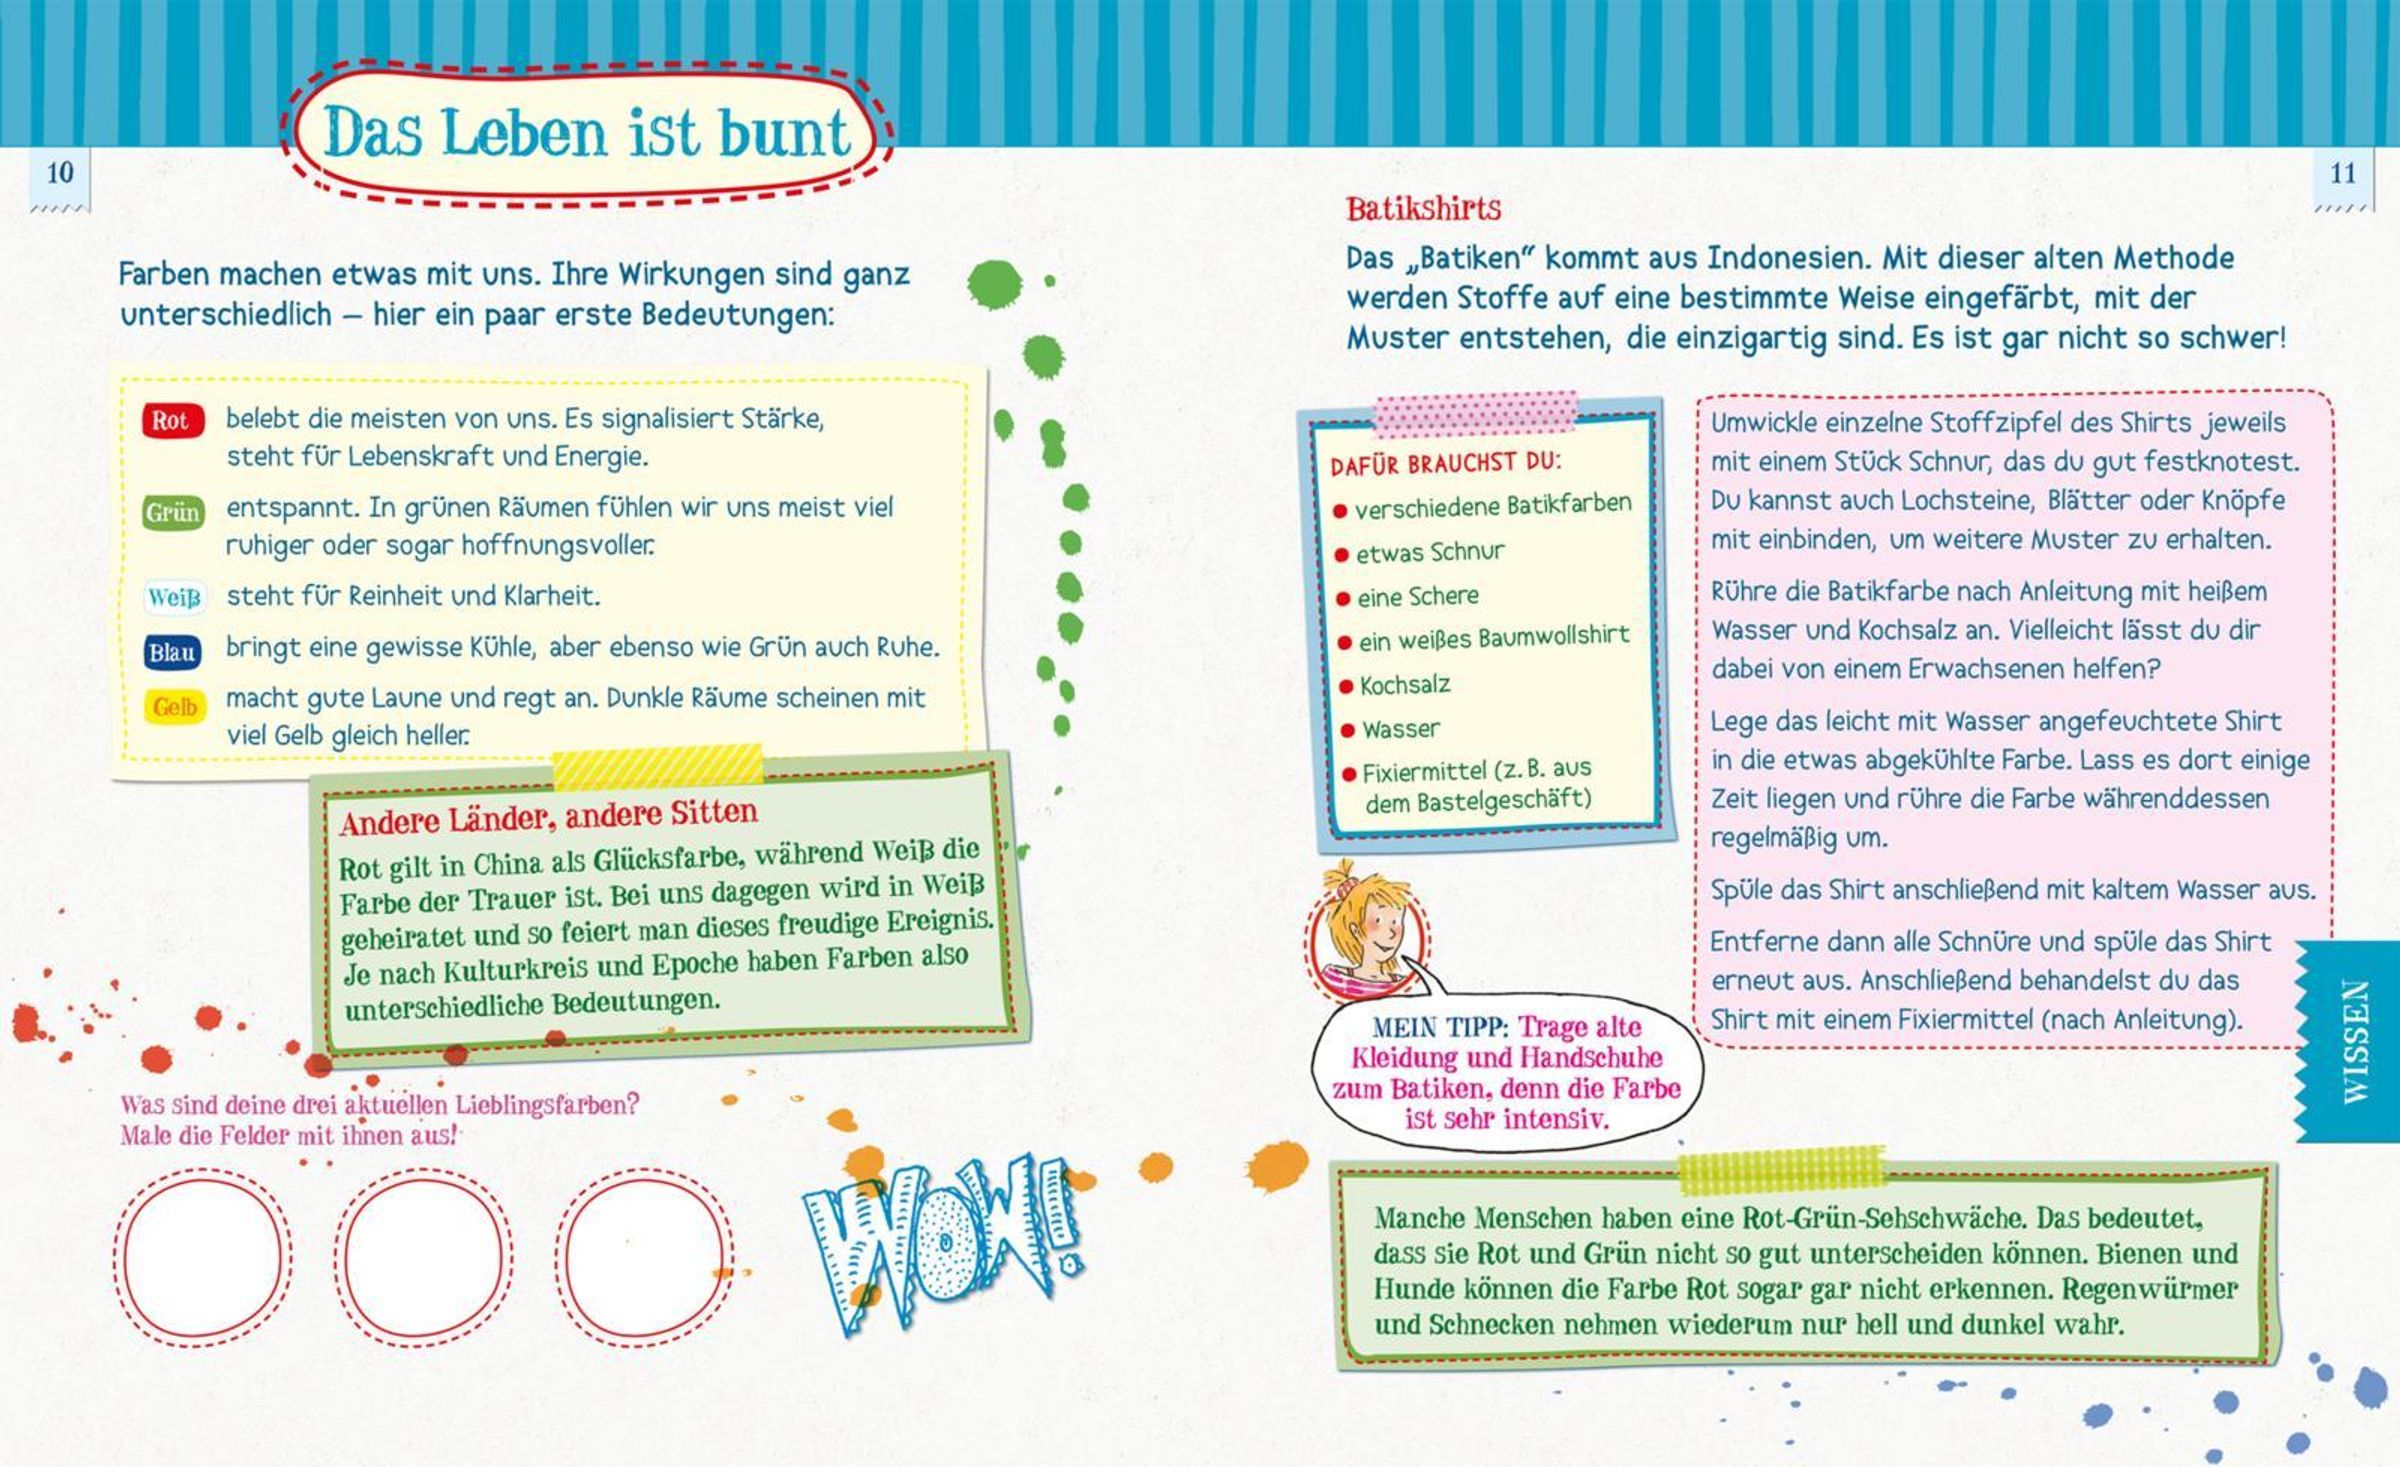 Das Leben ist bunt
10
Farben machen etwas mit uns. Ihre Wirkungen sind ganz
unterschiedlich – hier ein paar erste Bedeutungen:
Rot belebt die meisten von uns. Es signalisiert Stärke,
steht für Lebenskraft und Energie.
Grün entspannt. In grünen Räumen fühlen wir uns meist viel
ruhiger oder sogar hoffnungsvoller.
Weiß steht für Reinheit und Klarheit.
Blau bringt eine gewisse Kühle, aber ebenso wie Grün auch Ruhe.
Gelb macht gute Laune und regt an. Dunkle Räume scheinen mit
viel Gelb gleich heller.
Andere Länder, andere Sitten
Rot gilt in China als Glücksfarbe, während Weiß die
Farbe der Trauer ist. Bei uns dagegen wird in Weiß
geheiratet und so feiert man dieses freudige Ereignis.
Je nach Kulturkreis und Epoche haben Farben also
unterschiedliche Bedeutungen.
Was sind deine drei aktuellen Lieblingsfarben?
Male die Felder mit ihnen aus!
WOW!
11
Batikshirts
Das „Batiken“ kommt aus Indonesien. Mit dieser alten Methode
werden Stoffe auf eine bestimmte Weise eingefärbt, mit der
Muster entstehen, die einzigartig sind. Es ist gar nicht so schwer!
DAFÜR BRAUCHST DU:
● verschiedene Batikfarben
● etwas Schnur
● eine Schere
● ein weißes Baumwollshirt
● Kochsalz
● Wasser
● Fixiermittel (z. B. aus
dem Bastelgeschäft)
Umwickle einzelne Stoffzipfel des Shirts jeweils
mit einem Stück Schnur, das du gut festknotest.
Du kannst auch Lochsteine, Blätter oder Knöpfe
mit einbinden, um weitere Muster zu erhalten.
Rühre die Batikfarbe nach Anleitung mit heißem
Wasser und Kochsalz an. Vielleicht lässt du dir
dabei von einem Erwachsenen helfen?
Lege das leicht mit Wasser angefeuchtete Shirt
in die etwas abgekühlte Farbe. Lass es dort einige
Zeit liegen und rühre die Farbe währenddessen
regelmäßig um.
Spüle das Shirt anschließend mit kaltem Wasser aus.
Entferne dann alle Schnüre und spüle das Shirt
erneut aus. Anschließend behandelst du das
Shirt mit einem Fixiermittel (nach Anleitung).
MEIN TIPP: Trage alte
Kleidung und Handschuhe
zum Batiken, denn die Farbe
ist sehr intensiv.
WISSEN
Manche Menschen haben eine Rot-Grün-Sehschwäche. Das bedeutet,
dass sie Rot und Grün nicht so gut unterscheiden können. Bienen und
Hunde können die Farbe Rot sogar gar nicht erkennen. Regenwürmer
und Schnecken nehmen wiederum nur hell und dunkel wahr.